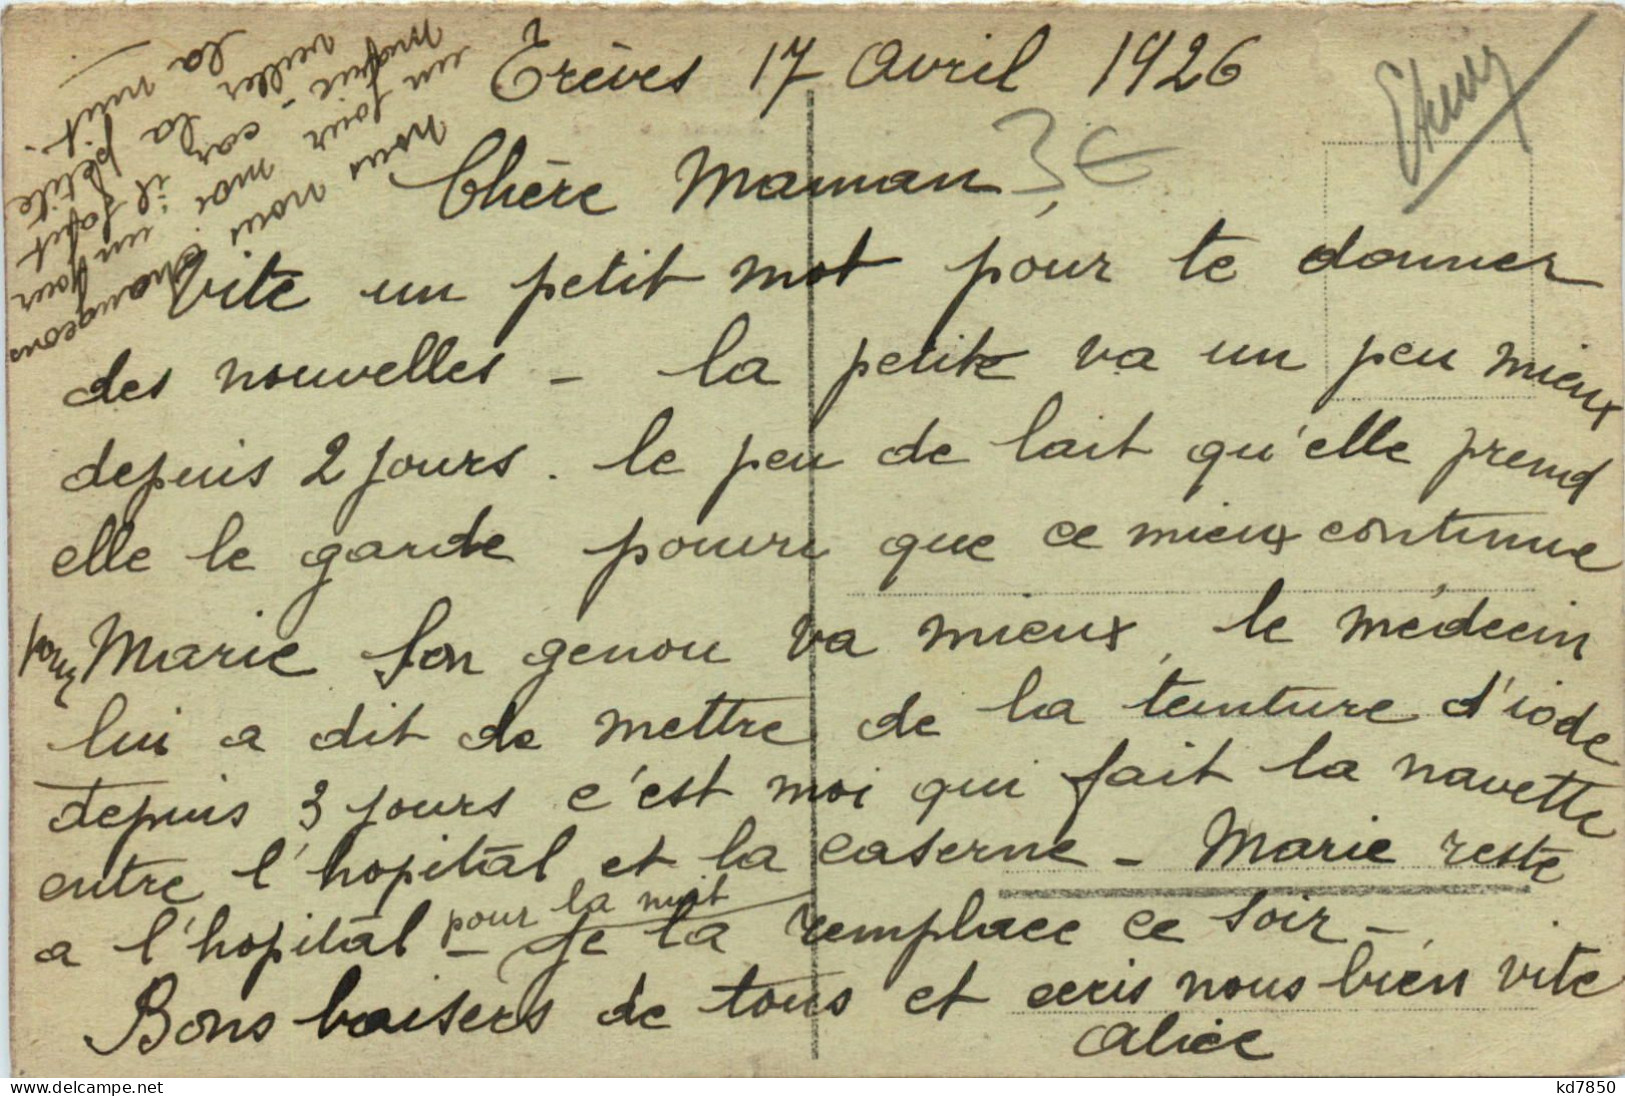 Trèves 17 Avril 1926
Chère Maman
3 €
Vite un petit mot pour te donner
des nouvelles - la petite va un peu mieux
depuis 2 jours. le peu de lait qu'elle prend
elle le garde pourvu que ce mieux continue
pour Marie son genou va mieux, le médecin
lui a dit de mettre de la teinture d'iode
depuis 3 jours c'est moi qui fait la navette
entre l'hopital et la caserne - Marie reste
a l'hopital pour la nuit - Je la remplace ce soir -
Bons baisers de tous et ecris nous bien vite
Alice
nous nous changeons
un jour moi un jour
il faut
veiller la petite
la nuit.
www.delcampe.net
kd7850